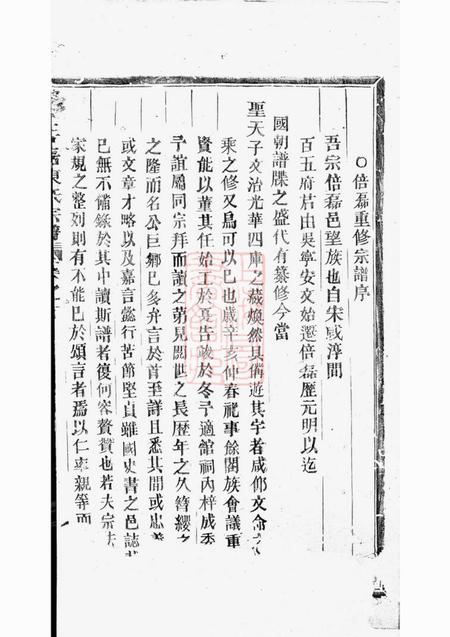 ○倍磊重修宗譜序
吾宗倍磊邑望族也自宋咸淳間
百五府君由吳寧安文始遷倍磊歷元明以迄
國朝譜牒之盛代有纂修今當
聖天子文治光華四庫之藏煥然具備遊其宇者咸仰文命
乘之修又烏可以已也歲辛亥仲春祀事餘閣族會議重
資能以董其任始工於夏告竣於冬予適館祠內梓成
予誼屬同宗拜而讀之第見閥世之長歷年之久簪纓之
之隆而名公巨卿已多弁言於首至詳且悉其間或忠
或文章才略以及嘉言懿行苦節堅貞雖國史書之邑誌
已無不備錄於其中讀斯譜者復何容贅贊也若夫宗法
家規之整列則有不能已於頌言者焉以仁率親等而
陳氏宗譜